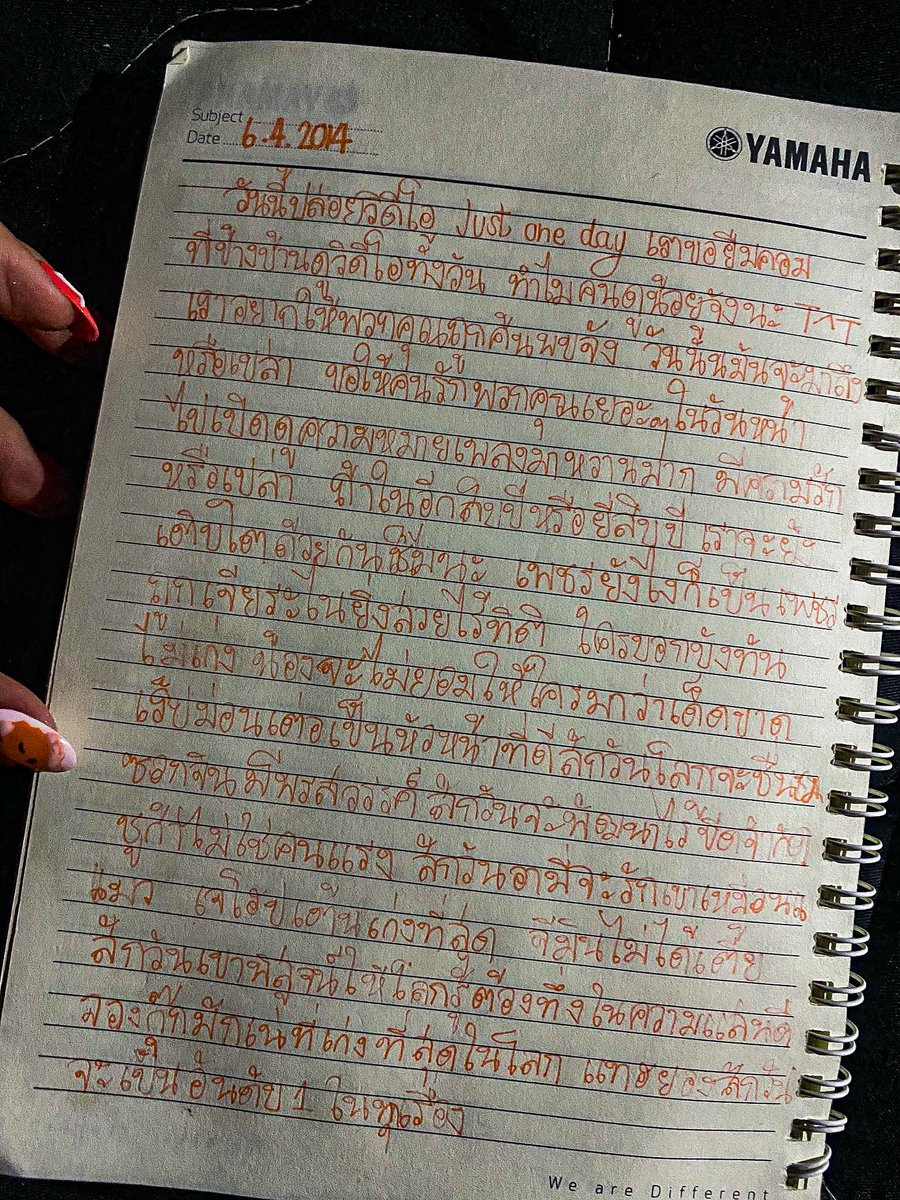 Subject
Date 6.4.2014
YAMAHA
วันนี้ปล่อยวิดีโอ Just one day เราขอยืมคอม
ที่ข้างบ้านดูวิดีโอทั้งวัน ทำไมคนดูน้อยจังนะ T^T
เราอยากให้พวกคุณถูกค้นพบจัง วันนั้นมันจะมาถึง
หรือเปล่า ขอให้คนรักพวกคุณเยอะๆในวันหน้า
ไปเปิดดูความหมายเพลงมาหวานมาก มีความรัก
หรือเปล่า ถ้าในอีกสิบปีหรือยี่สิบปี เราจะยัง
เติบโตด้วยกันใช่มั้นะ เพชรยังไงก็เป็นเพชร
เจียระไนยิ่งสวยไร้ที่ติ ใครบอกบังทัน
ไม่เก่ง น้องจะไม่ยอมให้ใครมากว่าเด็ดขาด
เรปม่อนเธอเป็นหัวหน้าที่ดี สักวันโลกจะชื่นชม
ซอกจินมีพรสวรรค์ สักวันจะพัฒนาไร้ขีดจำกัด
ชูก้าไม่ใช่คนแรง สักวันอามี่จะรักเขาเหมือน
แมว เจโฮปเต้นเก่งที่สุด จีมินไม่ได้เตี้ย
สักวันเขาพิสูจน์ให้โลกรู้ต้องทึ่งในความ
จองกุ๊กมักเน่ที่เก่งที่สุดในโลก แทฮยอง สักวัน
จะเป็นอันดับ 1 ในทุกเรื่อง
We are Different